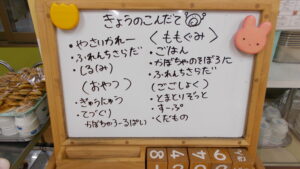 きょうのこんだて
・やさいかれー
・ふれんちさらだ
・しる(み)
(おやつ)
・ぎゅうにゅう
・てづくり
かぼちゃうーるぱい
〈ももぐみ〉
・ごはん
・かぼちゃのそぼろに
・ふれんちさらだ
(ごごしょく)
・とまとりぞっと
・すーぷ
・くだもの